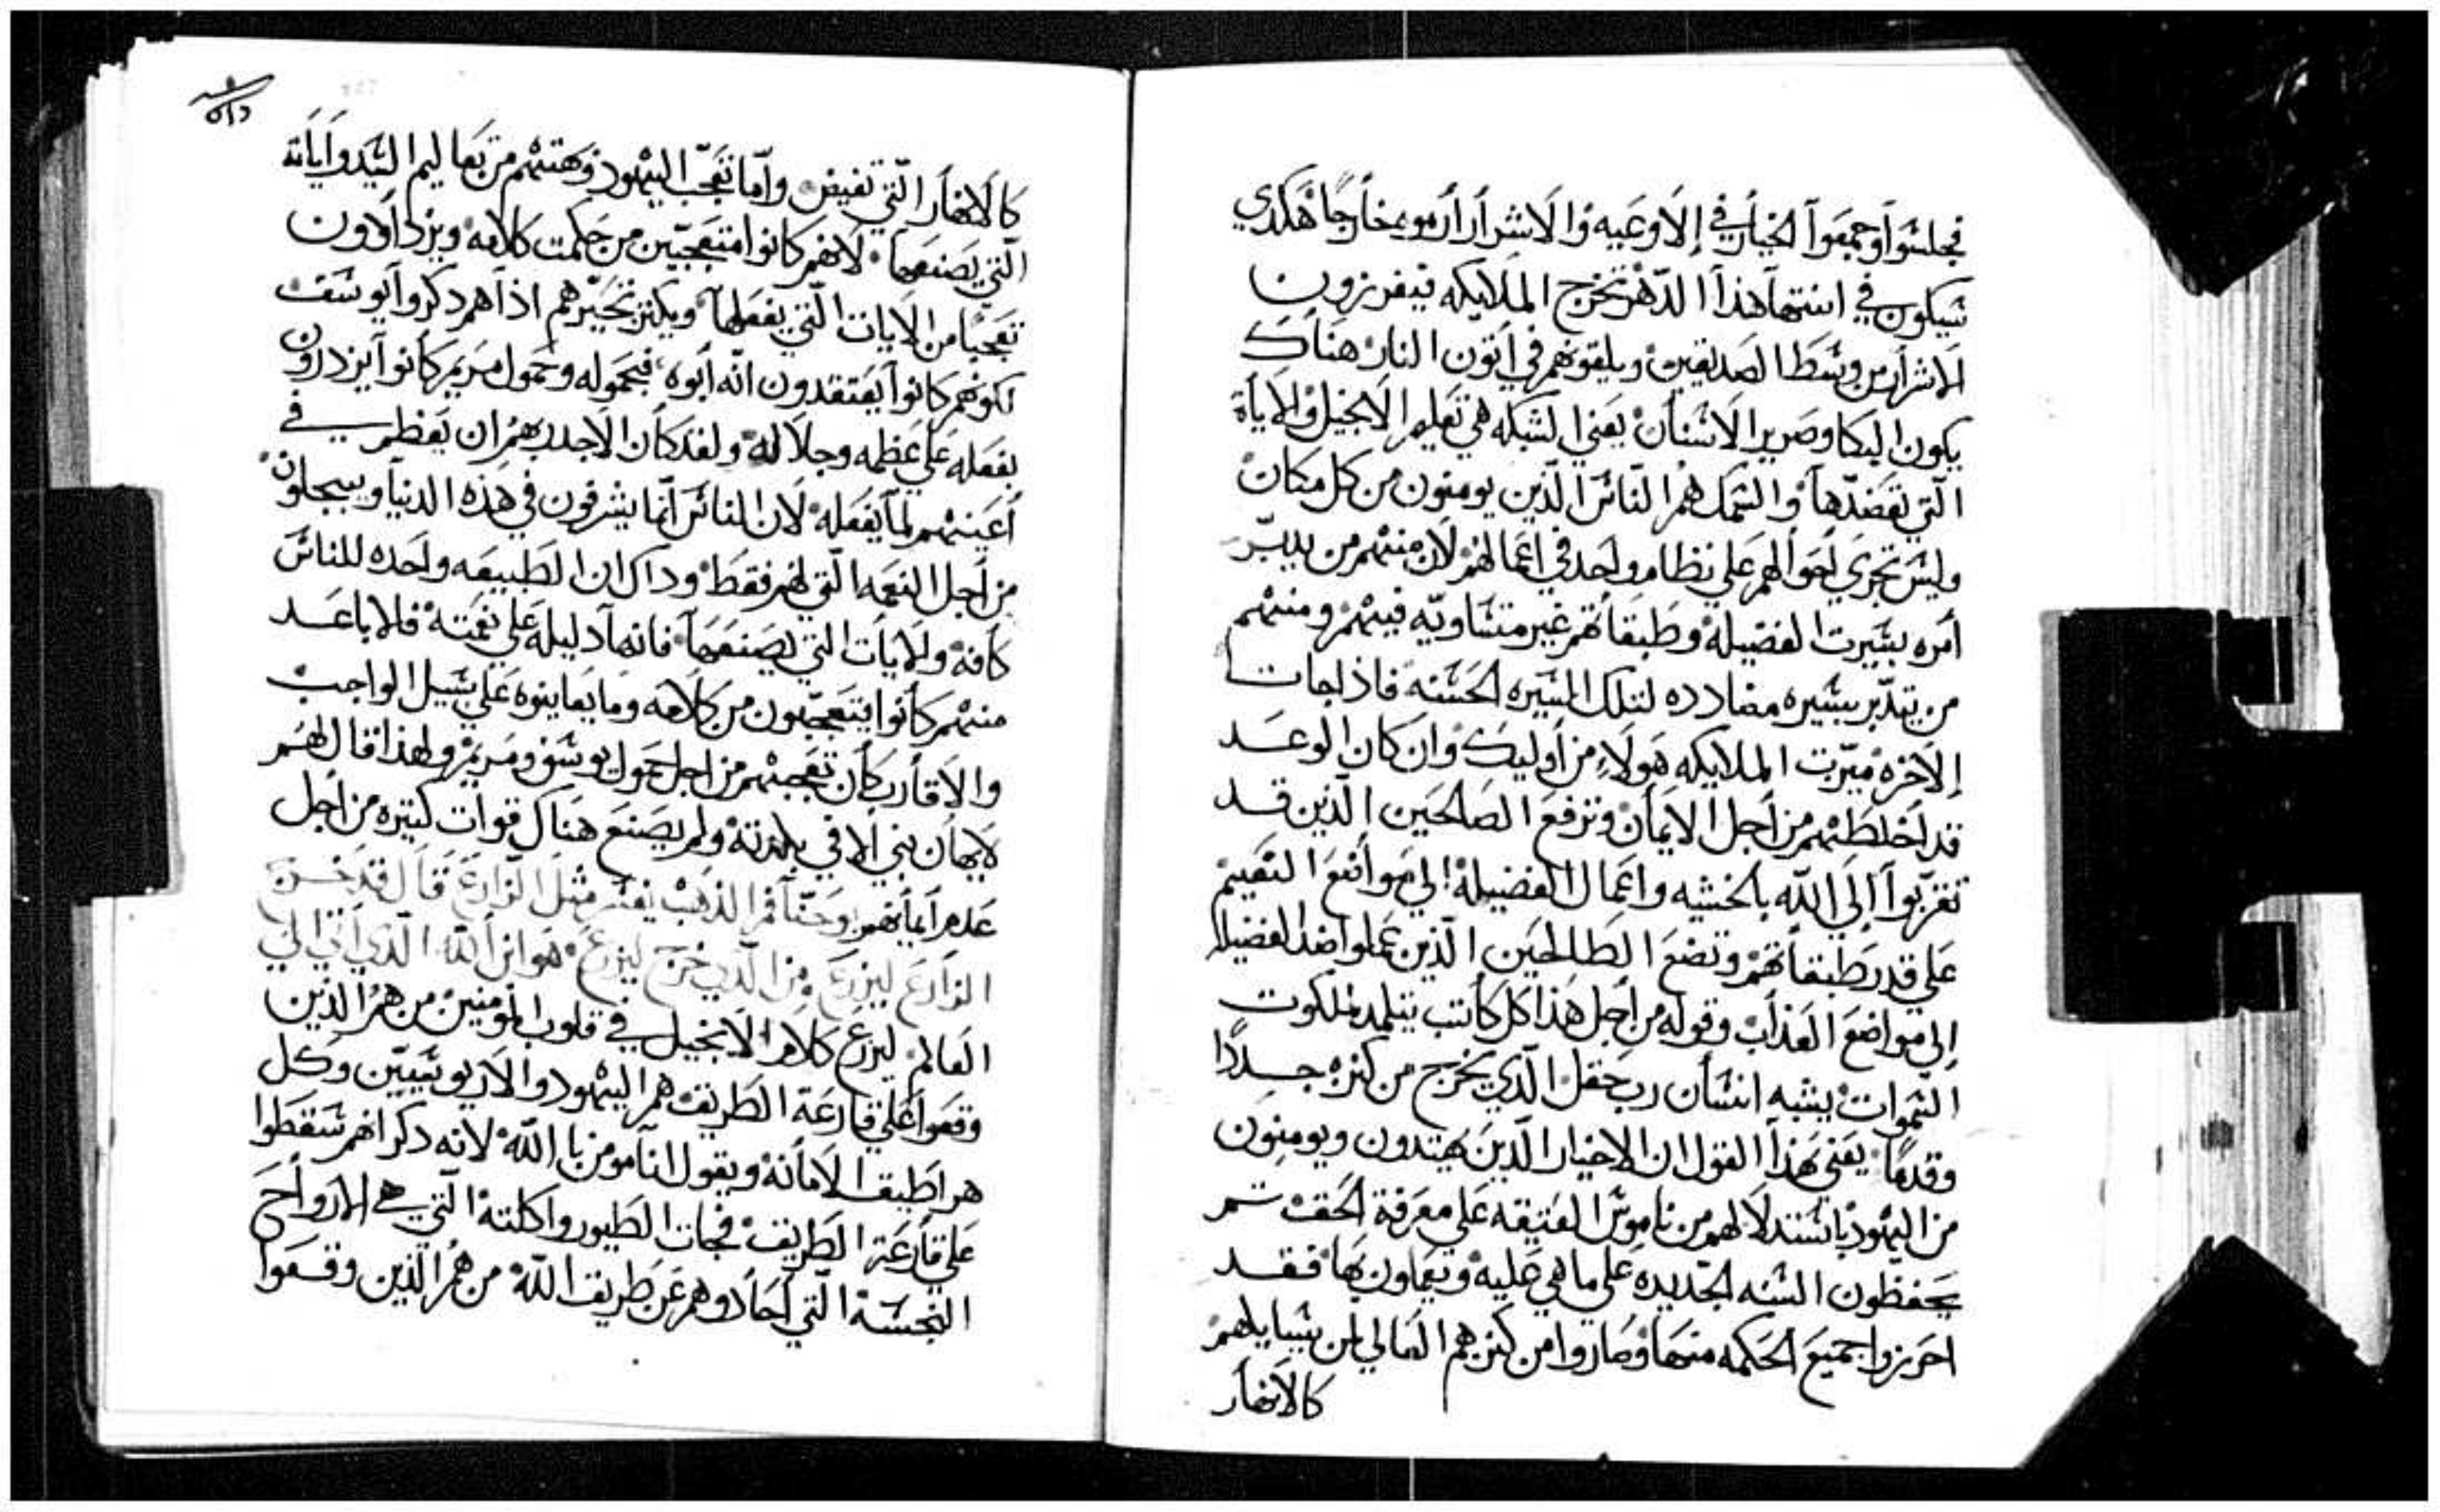 فجلسوا وجمعوا الخيار في الاوعيه والاشرار ارموهم خارجا هكدي
سيكون في انتها هذا الدهر تخرج الملايكه فيفرزون
الاشرار من وسط الصديقين ويلقونهم في اتون النار هناك
يكون البكا وصرير الاسنان يعني الشبكه هي تعليم الانجيل والاياة
التي تعضدها والسمك هم الناس الذين يومنون من كل مكان
وليس تجري احوالهم علي نظام واحد في اعمالهم لان منهم من يدبر
امره بسيرت الفضيله وطبقاتهم غير متساويه فيهم ومنهم
من يتدبر بسيره مضادده لتلك السيره الحسنه فاذا جات
الاخره ميزت الملايكه هولاء من اوليك وان كان الوعد
قد اخلطهم من اجل الايمان وترفع الصالحين الذين قد
تقربوا الي الله بالخشيه واعمال الفضيله الي مواضع النعيم
علي قدر طبقاتهم وتضع الطالحين الذين عملوا ضد الفضيله
الي مواضع العذاب وقوله من اجل هذا كل كاتب يتلمد لملكوت
السموات يشبه انسان رب حقل الذي يخرج من كنزه جددا
وقدما يعني بهذا القول ان الاخيار الذين يهتدون ويومنون
من اليهود باستدلالهم من ناموس العتيقه علي معرفة الحق تم
يحفظون السنه الجديده علي ما هي عليه ويعملون بها فقد
احرزوا جميع الحكمه منها وصاروا من كنزهم العالي لمن يسايلهم
كالانهار
كالانهار التي تفيض واما تعجب اليهود وهتهم من تعاليم السيد واياته
التي يصنعها لانهم كانوا متعجبين من حكمت كلامه ويزدادون
تعجبا من الايات التي يفعلها ويكتر تحيرهم اذا هم دكروا يوسف
لكونهم كانوا يعتقدون انه ابوه فبحموله وحمول مريم كانوا يزدرون
بفعله علي عظمه وجلاله ولقد كان الاجدر بهم ان يعظم في
اعينهم لما يفعله لان الناس انما يشرفون في هذه الدنيا ويبجلون
من اجل النعمه التي لهم فقط وداك ان الطبيعه واحده للناس
كافة والايات التي يصنعها فانها دليله علي نعمته فالاباعد
منهم كانوا يتعجبون من كلامه وما يعاينوه علي سبيل الواجب
والاقارب كان تعجبهم من اجل حمول يوسف ومريم ولهذا قال لهم
لايهان نبي الا في بلدته ولم يصنع هناك قوات كتيره من اجل
عدم ايمانهم يوحنا فم الدهب يفسر مثل الزارع قال قد خرج
الزارع ليزرع من الدي خرج ليزرع هو ابن الله الدي اتي الي
العالم ليزرع كلام الانجيل في قلوب المومنين من هم الذين
وقعوا علي قارعة الطريق هم اليهود والاريوسيين وكل
هراطيقـ الامانة ويقول انا مومن بالله لانه دكر انهم سقطوا
علي قارعة الطريق فجات الطيور واكلته التي هي الارواح
النجسة التي احادوهم عن طريق الله من هم الذين وقعوا